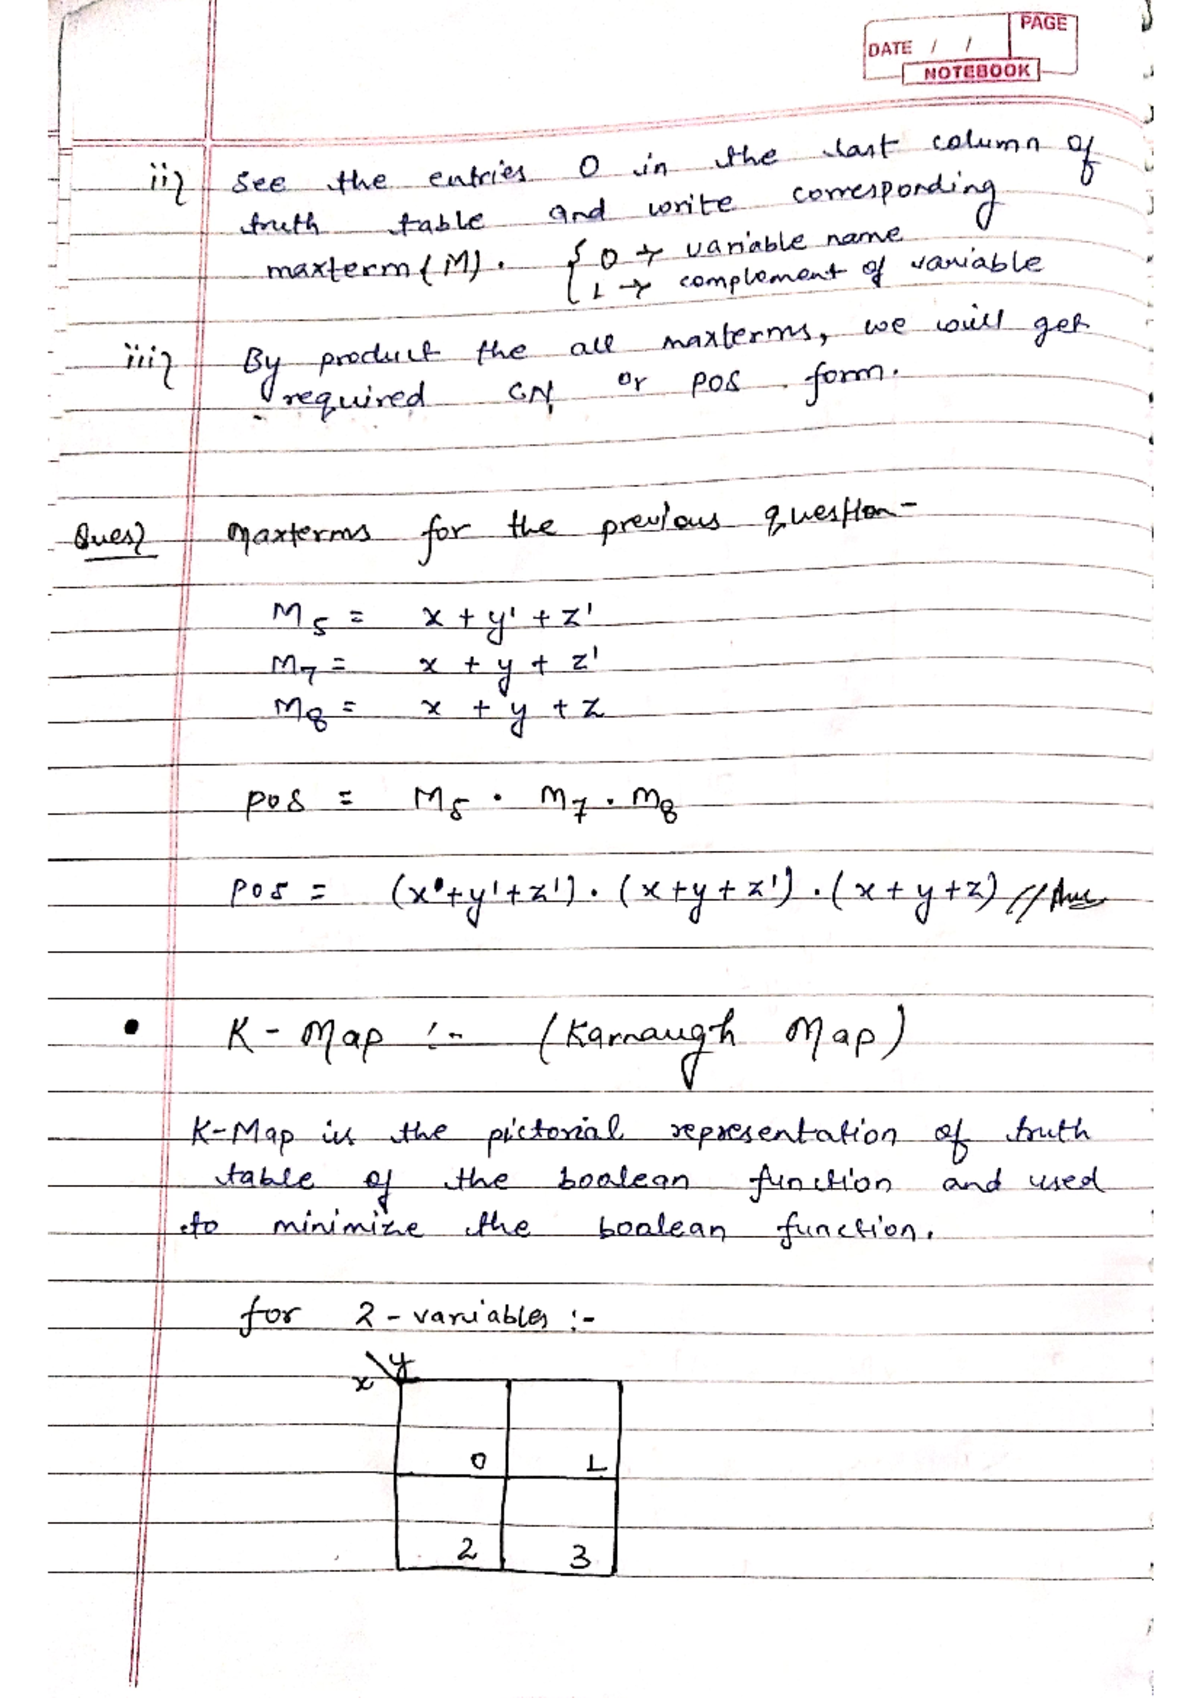 PAGE
DATE / /
NOTEBOOK
ii) See the entries 0 in the last column of
truth table and write corresponding
maxterm (M). { 0 → variable name
1 → complement of variable
iii) By product the all maxterms, we will get
required CN or POS form.
Ques) Maxterms for the previous question-
M5 = x + y' + z'
M7 = x + y + z'
M8 = x + y + z
POS = M5 . M7 . M8
POS = (x+y'+z') . (x+y+z') . (x+y+z) // Ans
• K-Map :- (Karnaugh Map)
K-Map is the pictorial representation of truth
table of the boolean function and used
to minimize the boolean function.
for 2-variables :-
x \ y
0 1
2 3